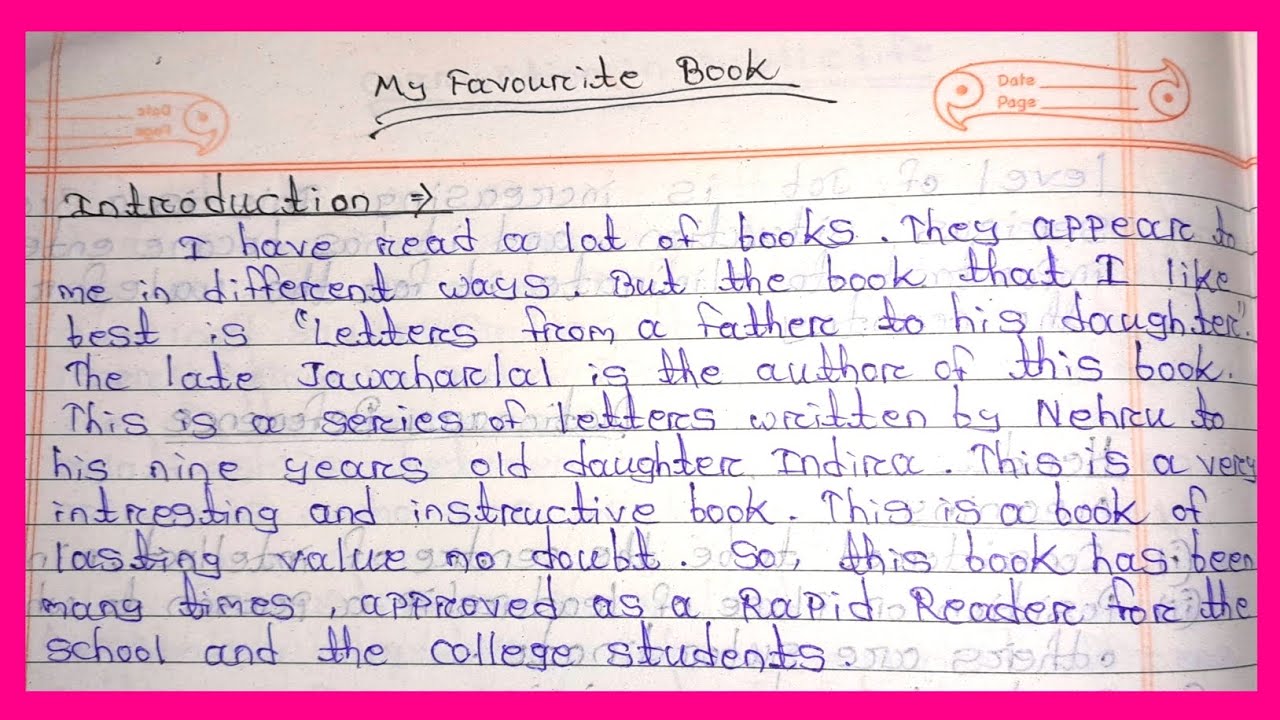 My Favourite Book
Date
Page
Introduction ⇒
I have read a lot of books. They appear to
me in different ways. But the book that I like
best is "Letters from a father to his daughter".
The late Jawaharlal is the author of this book.
This is a series of letters written by Nehru to
his nine years old daughter Indira. This is a very
intresting and instructive book. This is a book of
lasting value no doubt. So, this book has been
many times, approved as a Rapid Reader for the
school and the college students.